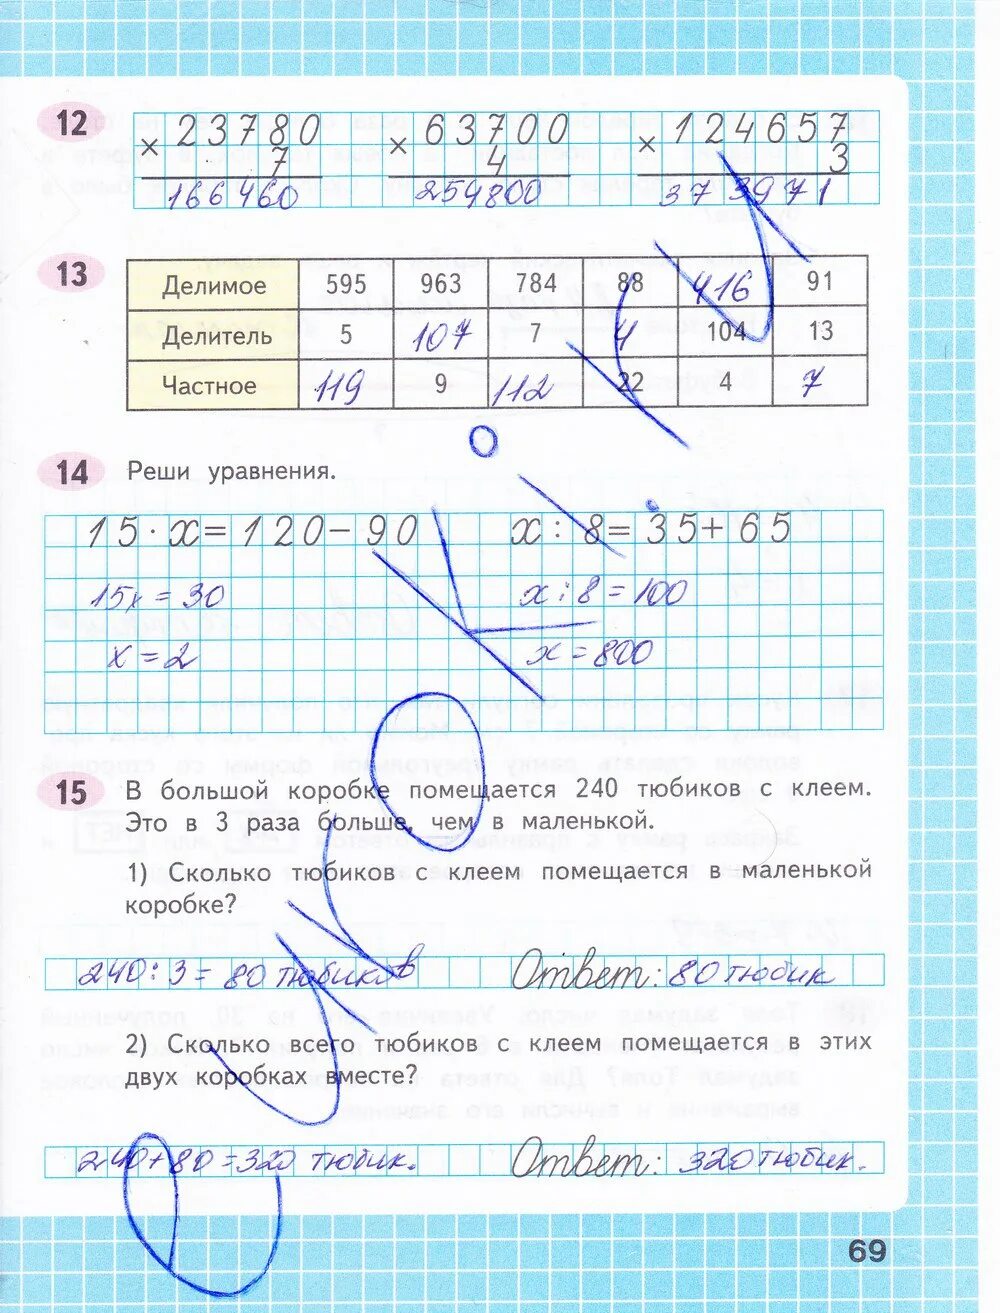 12
× 23780
7
166460
× 63700
4
254800
× 124657
3
373971
13
Делимое 595 963 784 88 416 91
Делитель 5 107 7 4 104 13
Частное 119 9 112 22 4 7
14 Реши уравнения.
15 · x = 120 − 90
x : 8 = 35 + 65
15x = 30
x : 8 = 100
x = 2
x = 800
15 В большой коробке помещается 240 тюбиков с клеем.
Это в 3 раза больше, чем в маленькой.
1) Сколько тюбиков с клеем помещается в маленькой
коробке?
240 : 3 = 80 тюбиков Ответ: 80 тюбик
2) Сколько всего тюбиков с клеем помещается в этих
двух коробках вместе?
240 + 80 = 320 тюбик. Ответ: 320 тюбик.
69